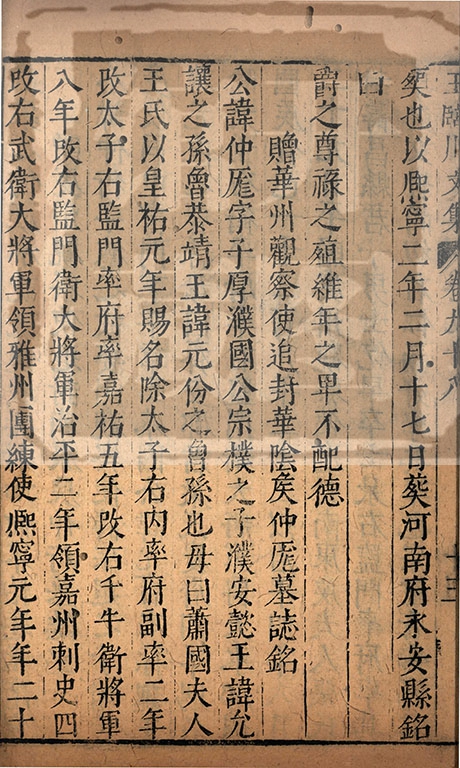 王臨川文集 卷九十八 十三
葵也以熈寧二年二月十七日葵河南府永安縣銘
曰
爵之尊祿之殖維年之畀不配德
贈華州觀察使追封華陰矦仲厖墓誌銘
公諱仲厖字子厚濮國公宗樸之子濮安懿王諱允
讓之孫魯恭靖王諱元份之曾孫也母曰蕭國夫人
王氏以皇祐元年賜名除太子右内率府副率二年
改太子右監門率府率嘉祐五年改右千牛衛將軍
八年改右監門衛大將軍治平二年領嘉州刺史四
改右武衛大將軍領雅州團練使熈寧元年年二十